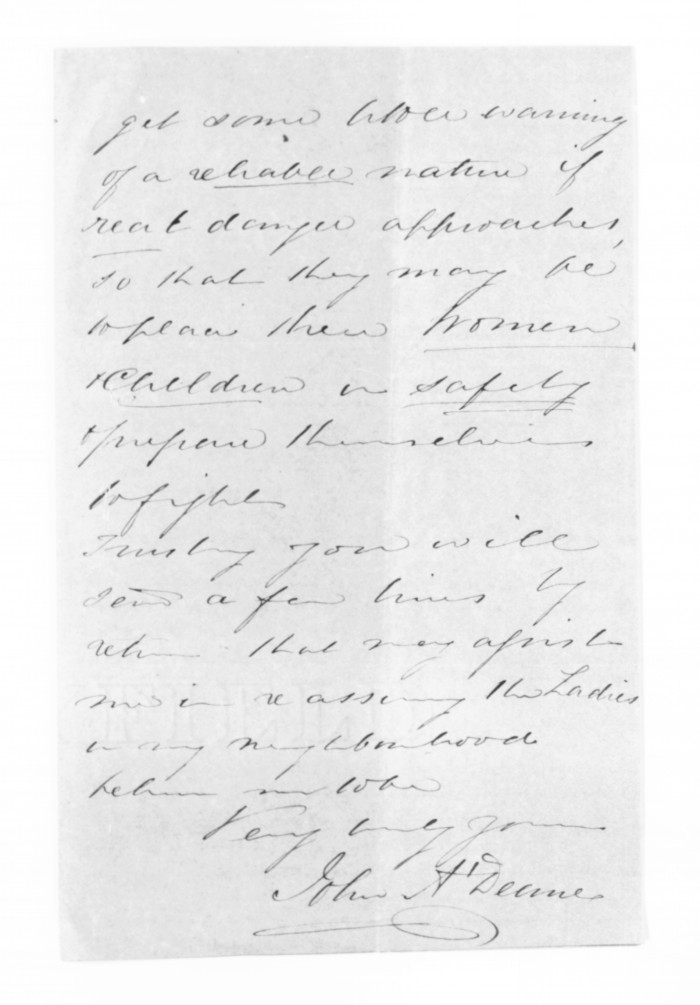 get some little warning
of a reliable nature if
real danger approaches,
so that they may be
to place their Women
& Children in safety
& prepare themselves
to fight
Trusting you will
send a few lines by
return that may assist
me in reassuring the Ladies
in my neighbourhood
believe me to be
Very truly yours
John A Deane